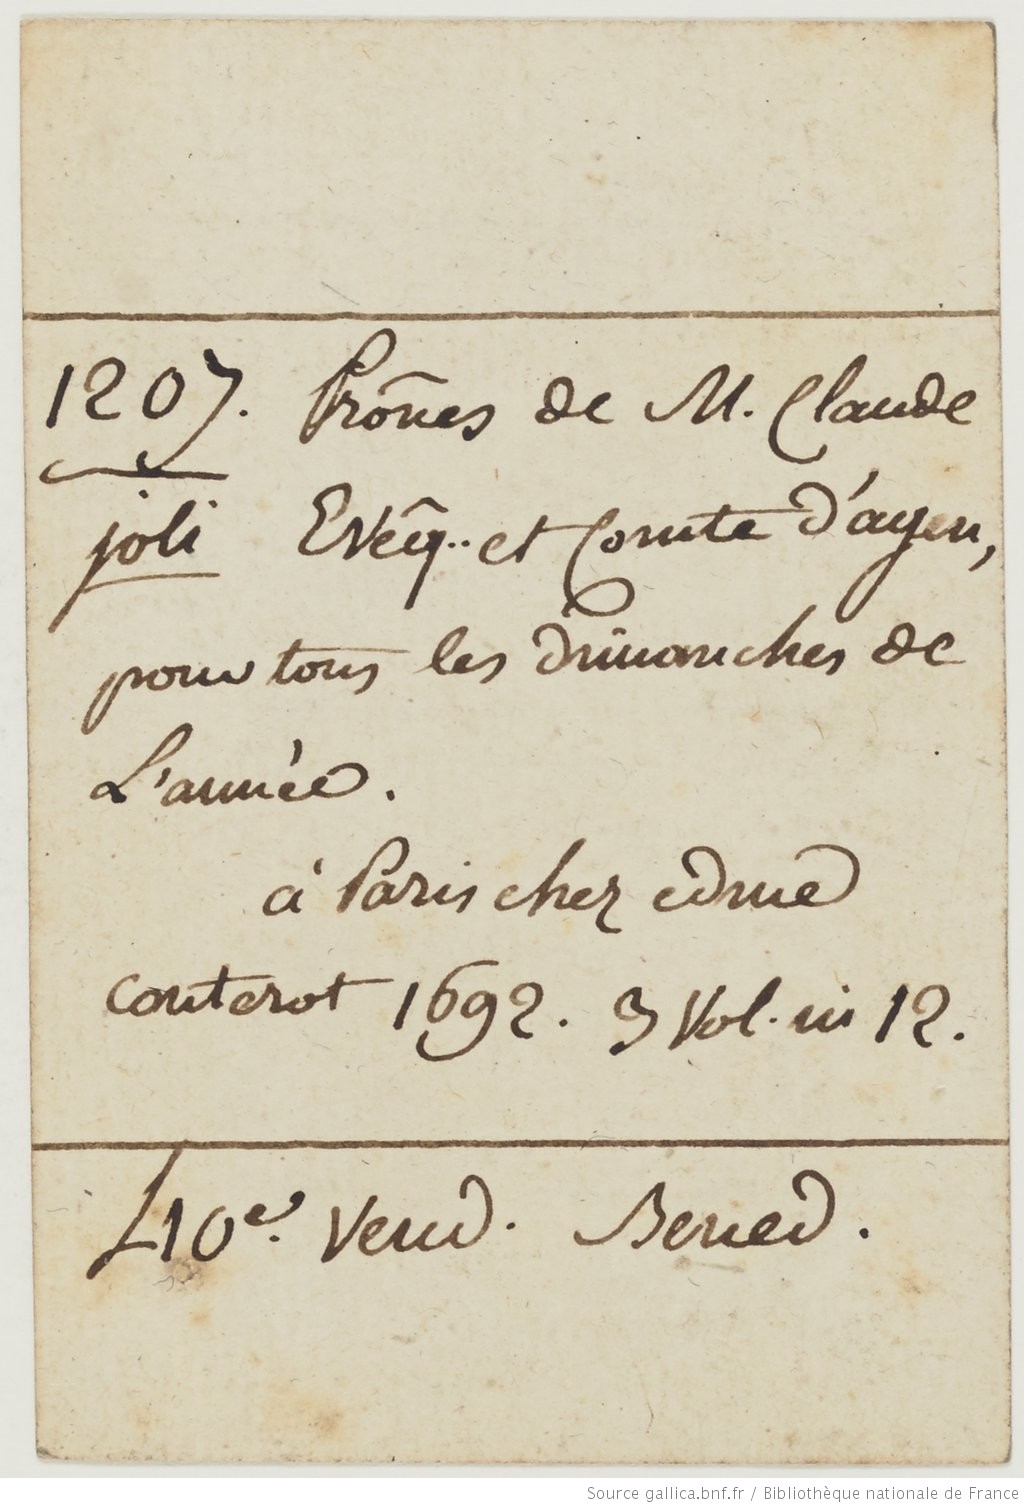 1207. Prônes de M. Claude
joli Evêq.. et Comte d'agen,
pour tous les dimanches de
L'année.
à Paris chez edme
couterot 1692. 3 Vol. in 12.
L10e. Vend. Bened.
Source gallica.bnf.fr / Bibliothèque nationale de France